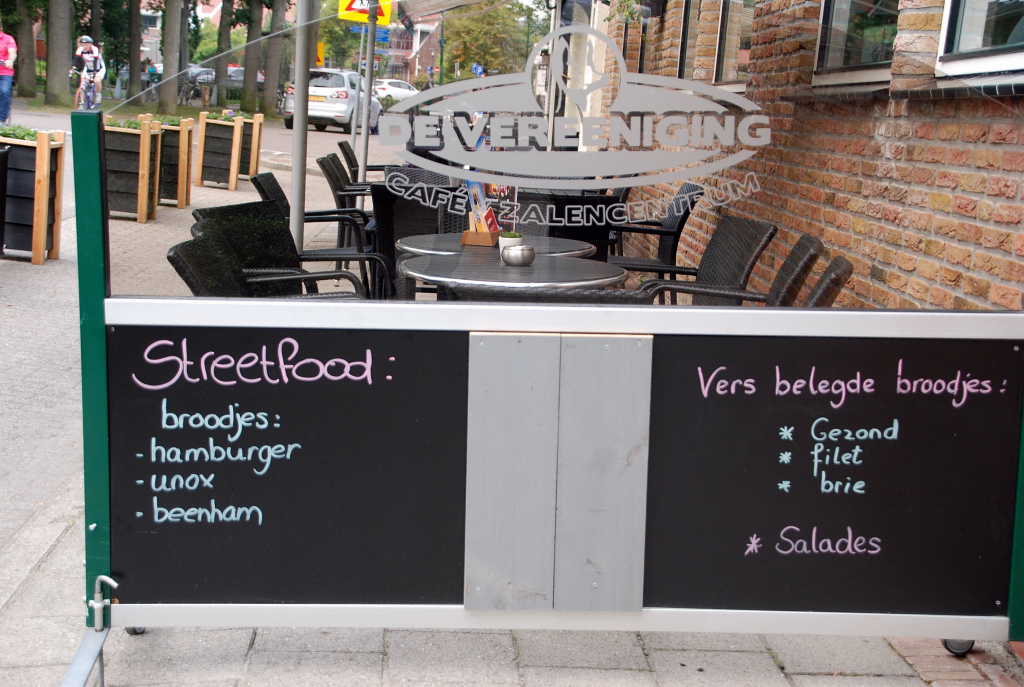 DE VEREENIGING
CAFÉ ZALENCENTRUM
Streetfood:
broodjes:
- hamburger
- unox
- beenham
Vers belegde broodjes:
* Gezond
* filet
* brie
* Salades